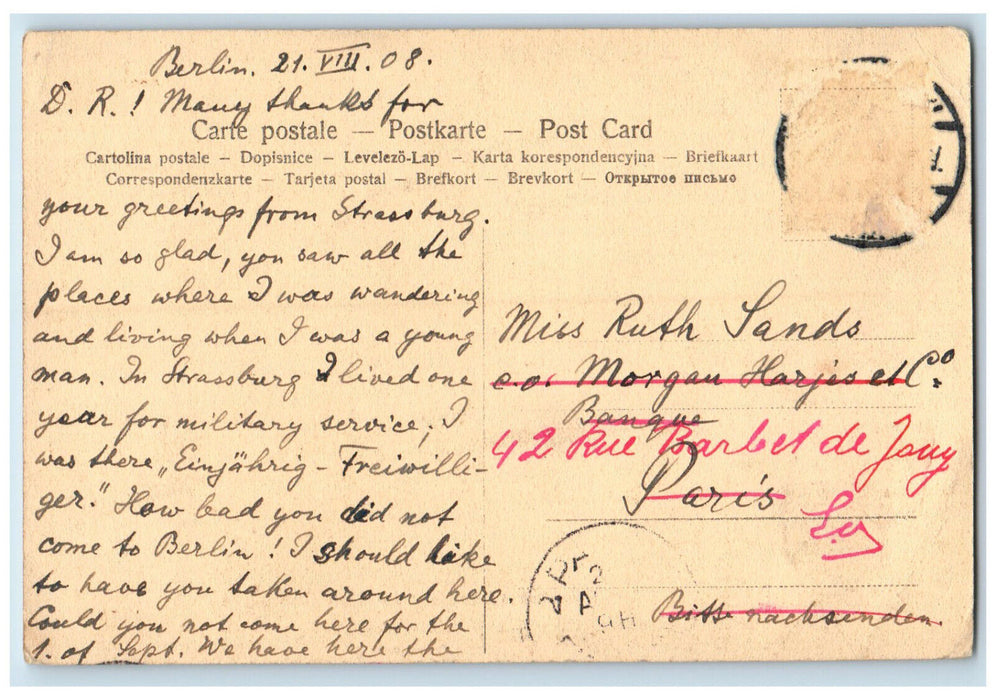 Berlin. 21. VIII. 08.
D. R.! Many thanks for
Carte postale — Postkarte — Post Card
Cartolina postale – Dopisnice – Levelező-Lap – Karta korespondencyjna – Briefkaart
Correspondenzkarte – Tarjeta postal – Brefkort – Brevkort – Открытое письмо
your greetings from Strassburg.
I am so glad, you saw all the
places where I was wandering
and living when I was a young
man. In Strassburg I lived one
year for military service; I
was there „Einjährig-Freiwilli-
ger." How bad you did not
come to Berlin! I should like
to have you taken around here.
Could you not come here for the
1. of Sept. We have here the
Miss Ruth Sands
c.o. Morgan Harjes et Co.
Banque
42 Rue Barbet de Jouy
Paris
Bitte nachsenden.